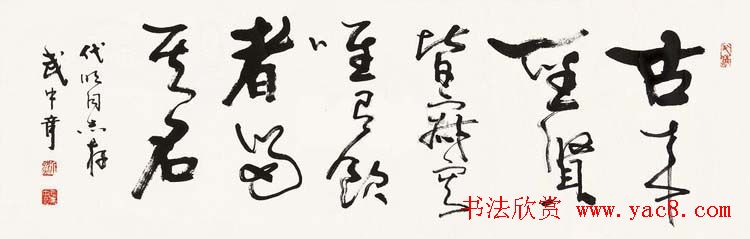 古来
聖賢
皆寂寞
唯有飲
者留
其名
同志存
武中奇
书法欣赏 www.yac8.com